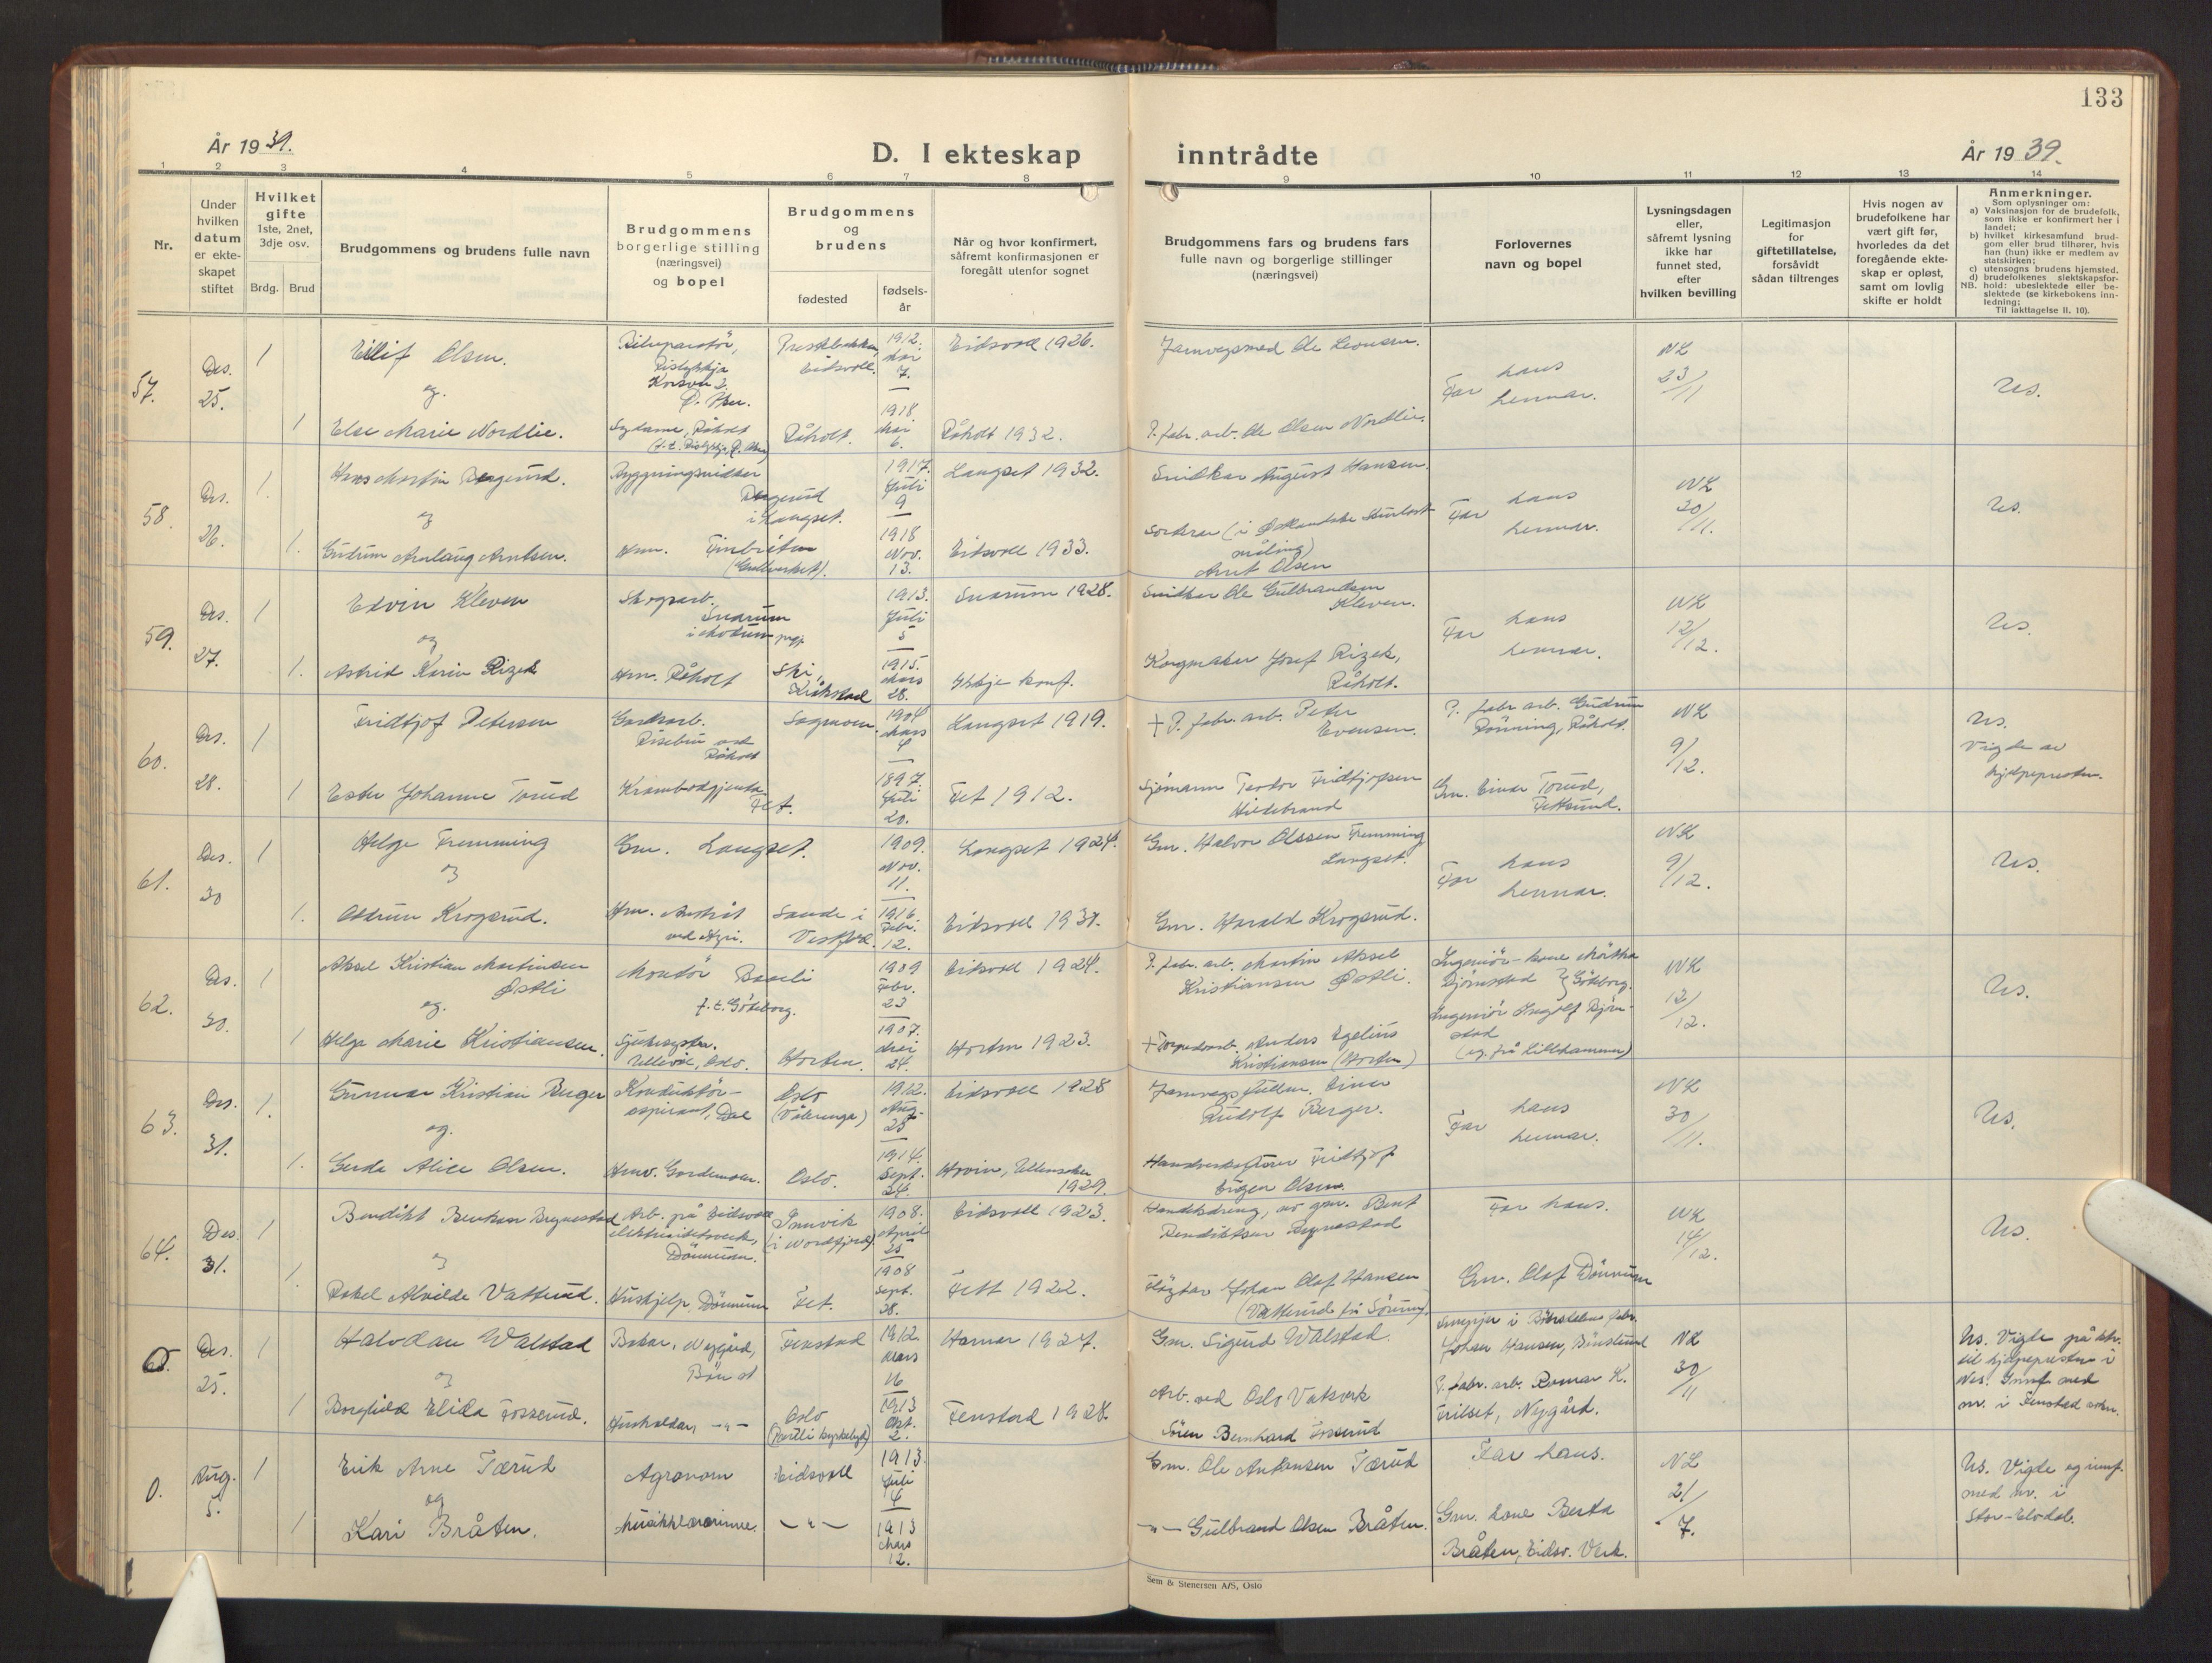 133
År 1939.
D. I ekteskap inntrådte
År 1939.
1 2 3 4 5 6 7 8 9 10 11 12 13 14
Nr.
Under hvilken datum er ekteskapet stiftet
Hvilket gifte 1ste, 2net, 3dje osv.
Brdg. Brud
Brudgommens og brudens fulle navn
Brudgommens borgerlige stilling (næringsvei) og bopel
Brudgommens og brudens
fødested
fødselsår
Når og hvor konfirmert, såfremt konfirmasjonen er foregått utenfor sognet
Brudgommens fars og brudens fars fulle navn og borgerlige stillinger (næringsvei)
Forlovernes navn og bopel
Lysningsdagen eller, såfremt lysning ikke har funnet sted, efter hvilken bevilling
Legitimasjon for giftetillatelse, forsåvidt sådan tiltrenges
Hvis nogen av brudefolkene har vært gift før, hvorledes da det foregående ekteskap er opløst, samt om lovlig skifte er holdt
Anmerkninger.
Som oplysninger om:
a) Vaksinasjon for de brudefolk, som ikke er konfirmert her i landet;
b) hvilket kirkesamfund brudgom eller brud tilhører, hvis han (hun) ikke er medlem av statskirken;
c) utensogns brudens hjemsted.
d) brudefolkenes slektskapsforhold: ubeslektede eller beslektede (se kirkebokens innledning;
NB.
Til iakttagelse II. 10).
57. Des. 25. 1
Eilif Olsen.
Risløkkja
Eidsvoll.
1912. mai 7.
Eidsvoll 1926.
Far hans hennar.
NL 23/11
Us.
og
1 Else Marie Nordlie.
Råholt.
1918. Mai 6.
Råholt 1932.
P. fabr. arb. Ole Olsen Nordlie.
58. Des. 26. 1.
Hans Martin
i Langset.
1917. Juli 9
Langset 1932.
Snikkar August Hansen.
Far hans hennar.
NL 20/11.
Us.
og
1. Gudrun Arnlaug Arntsen.
Hmv.
1918 Nov. 13.
Eidsvoll 1933.
Arnt Olsen
59. Des. 27. 1
Edvin Kleven
Skogsarb.
Snarum
i Modum prgj.
1913. Juli 5
Snarum 1928.
Snikkar Ole Gulbrandsen Kleven.
Far hans hennar.
NL 12/12.
Us.
og
1. Astrid Karin Rizek
Hmv. Råholt
Ski, Kråkstad
1915. Mars 28.
Ikkje konf.
Korgmaker Josef Rizek, Råholt.
60. Des. 28. 1
Fridtjof Petersen
Gardsarb.
Råholt
Sagmoen.
1904 Mars 4
Langset 1919.
+ P. fabr. arb. Peter Evensen.
P. fabr arb. Gudrun Rönning, Råholt.
NL 9/12.
Us.
Vigde av hjelpepresten.
1 Ester Johanne Torud
Krambodgjenta. Fet.
1897. Juli 20.
Fet 1912.
Sjömann Teodor Fridtjofsen Hildebrand
Gm. Einar Torud, Fetsund.
61. Des. 30 1
Helge Fremming
Gm. Langset.
1909. Nov. 11.
Langset 1924.
Gm. Halvor Olssen Fremming Langset.
Far hans hennar.
NL 9/12.
Us.
og
1. Oddrun Krogsrud.
Sande i Vestfold.
1916. Febr. 12.
Eidsvoll 1931.
Gm. Harald Krogsrud.
62. Des. 30. 1
Aksel Kristian Martinsen Østli
Montör
f.t. Göteborg.
1909 Febr. 23
Eidsvoll 1924.
P. fabr. arb. Martin Aksel Kristiansen Østli.
Ingeniör-kone Märtha Björnstad } Göteborg.
Ingeniör Ingolf Björnstad
(og. frå Lillehammer)
NL 12/12.
Us.
og.
1 Helga Marie Kristiansen.
Sjukesyster. Ullevål, Oslo.
Horten.
1907. Mai 24.
Horten 1923.
+ Torpedoarb. Anders Egelius Kristiansen (Horten)
63. Des. 31. 1.
Gunnar Kristian Berger
Konduktör-aspirant, Dal
Oslo (Vålerenga)
1912. Aug. 25
Eidsvoll 1928
Einar Rudolf Berger.
Far hans hennar.
NL 30/11.
Us.
og.
1. Gerda Alice Olsen.
Hmv. Gardemoen.
Oslo.
1914. Sept. 24.
Hovin, Ullensaker 1929.
Fridtjof Olsen.
64. Des. 31. 1
Bendikt Bentsen Brynestad
Arb. på Eidsvoll elektrisitetsverk, Dönnum.
(i Nordfjord)
1908. April 25
Eidsvoll 1923.
Bent Bendiktsen Brynestad
Far hans.
NL 14/12.
Us.
1. Rakel Alvilde Vatterud.
Huskjelp, Dönnum
Fet.
1908 Sept. 28.
Fett 1922.
Fløytar Johan Olaf Hansen (Vatterud frå Sörum)
Gm. Olaf Dönnum
65. Des. 25. 1
Halvdan Walstad
Bakar, Nygård, Bön st
Fenstad
1912. Mars 16
Hamar 1927.
Gm. Sigurd Walstad.
Johan Hansen,
NL 30/11
Us. Vigde på
til hjelpepresten i Nes. Innf med nr. i Fenstad sokn.
og
1 Borghild Elida Fosserud.
Hushaldar, -"-
Oslo
1913 Okt. 2.
Fenstad 1928.
Arb. ved Oslo Vatsverk
Sören Bernhard Fosserud
P. fabr. arb. Ramar K. Frilset, Nygård.
0. Aug. 5. 1
Erik Arne Tærud
Agronom
Eidsvoll
1913. Juli 4
Gm. Ole Antonsen Tærud
Far hans.
NL 21/7.
Us. Vigde og innf. med nr. i Stor-Elvdal.
og
1 Kari Bråten.
Musikklærarinne.
-"-
1913 Mars 12.
-"- Gulbrand Olsen Bråten.
Gm. kone Berta Bråten, Eidsv. Verk.
Sem & Stenersen A/S, Oslo